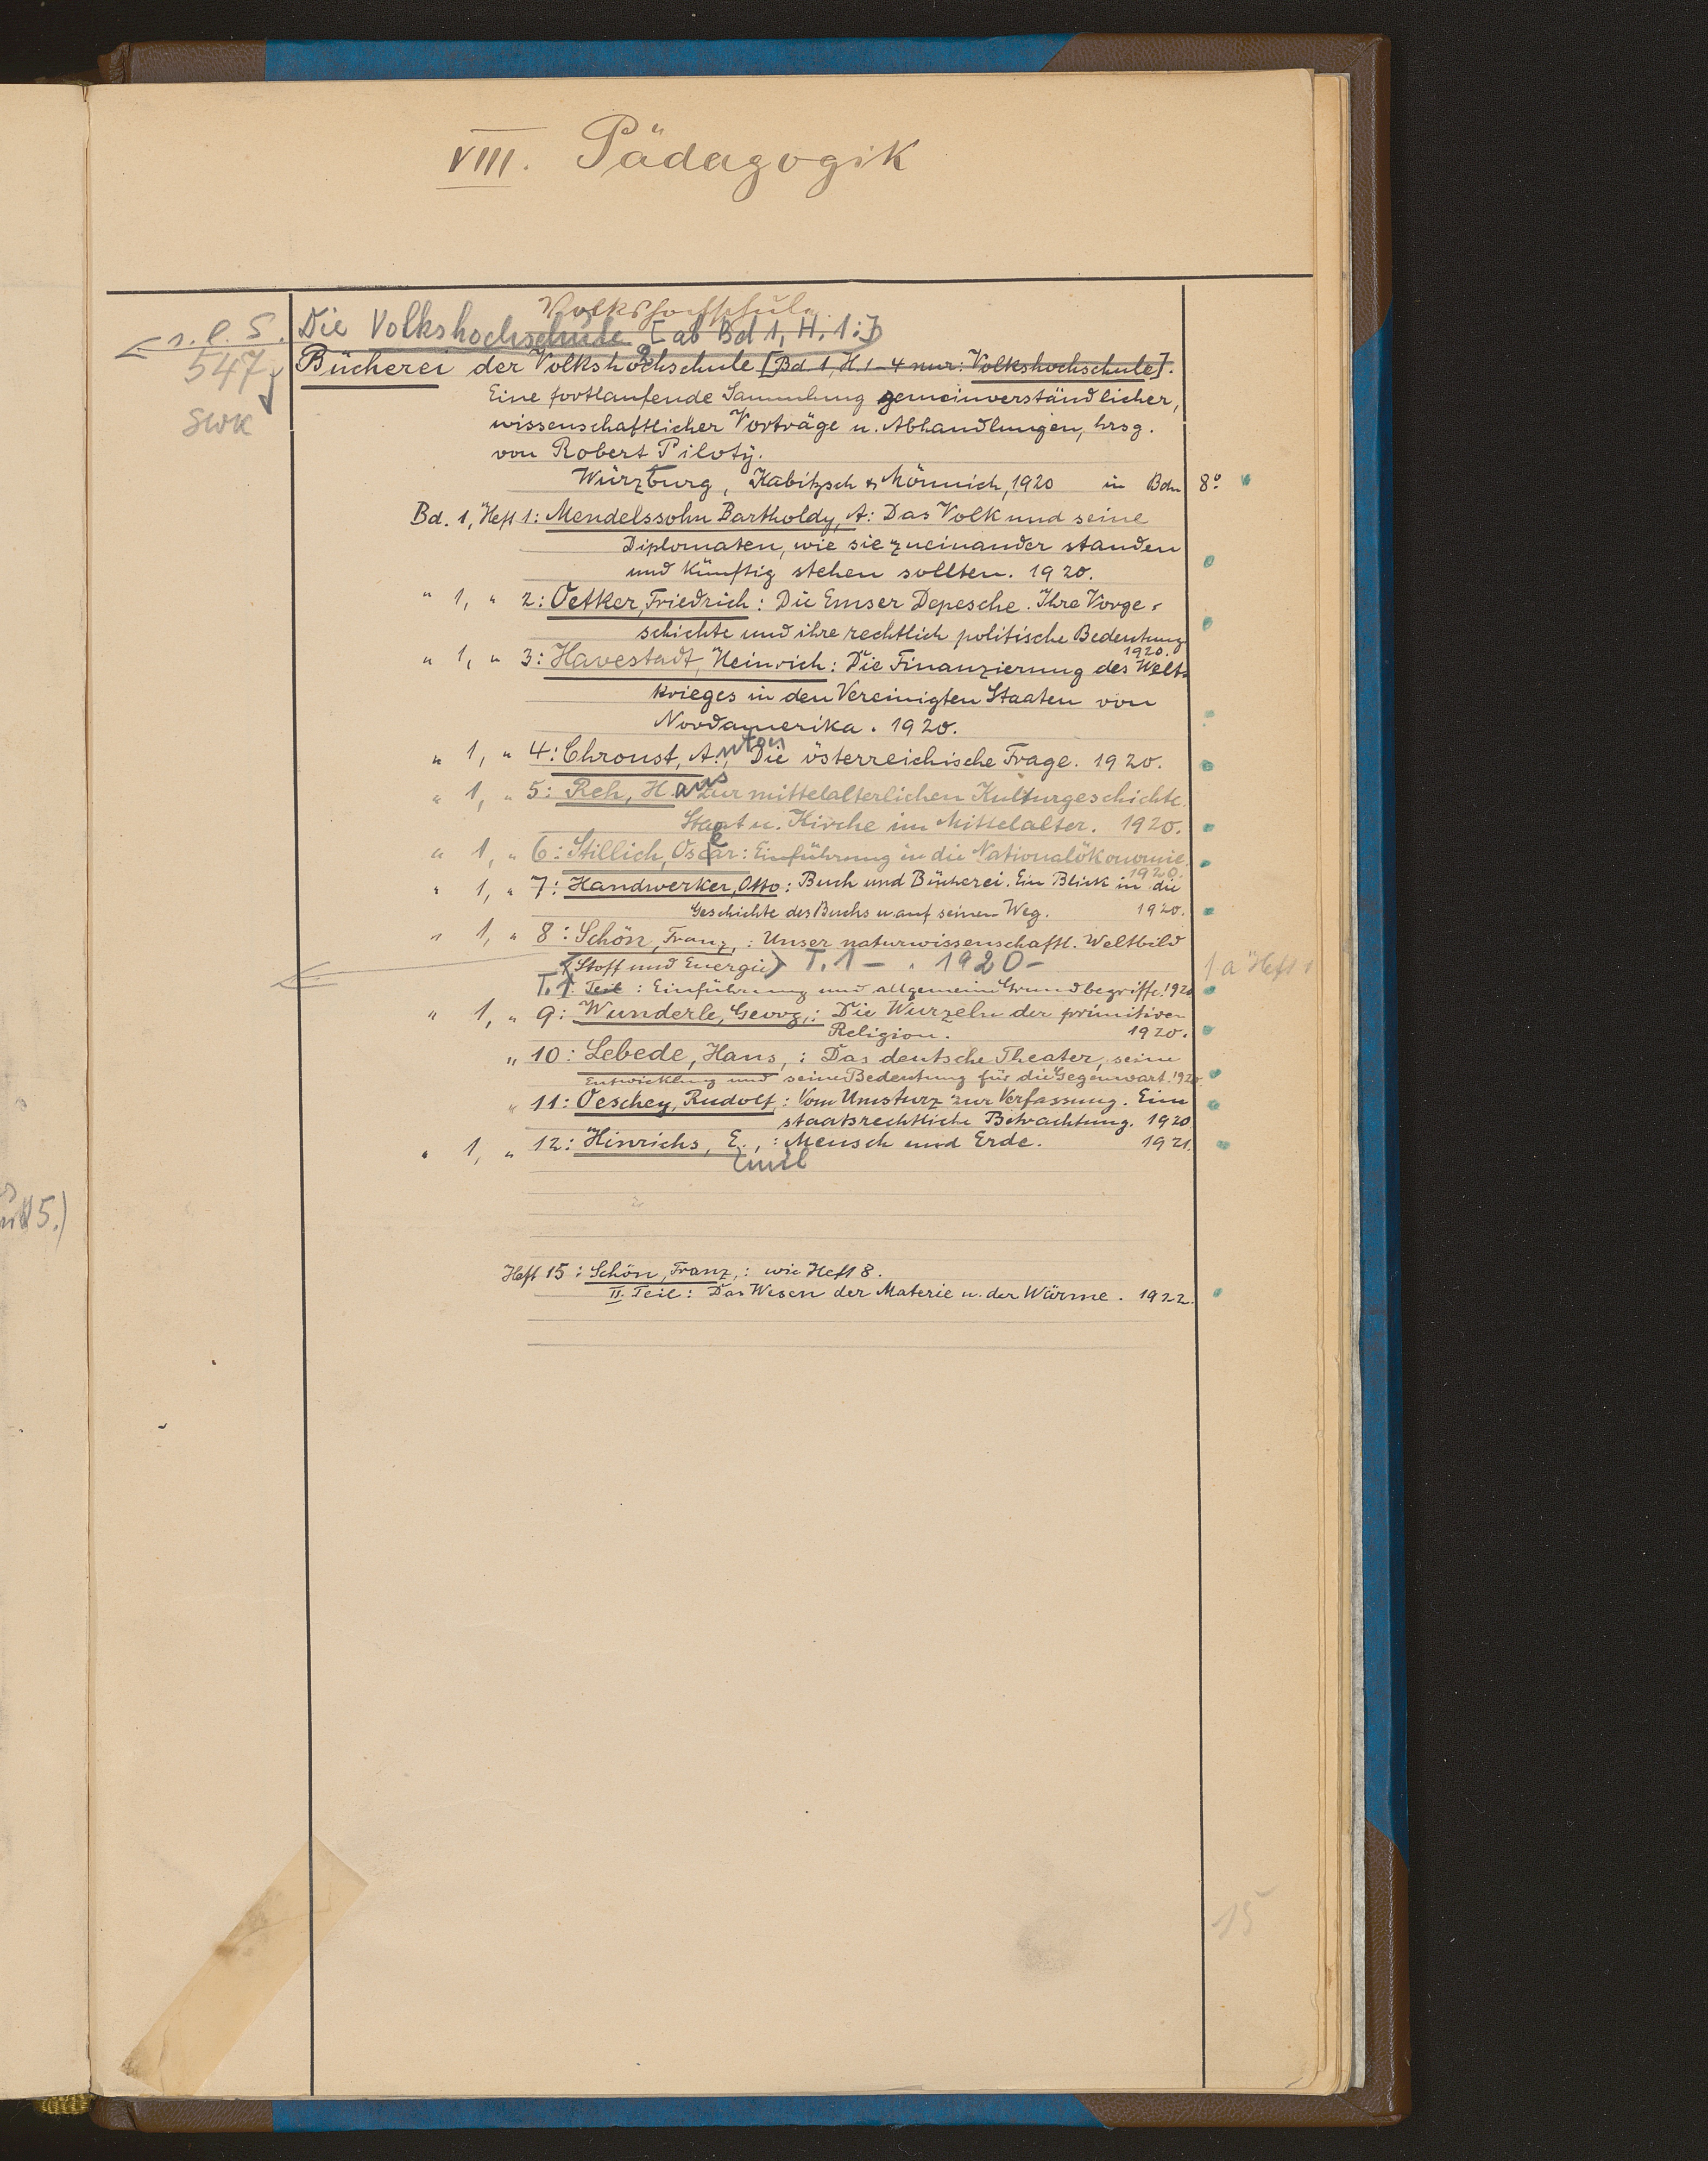 VIII. Pädagogik
Volkshochschule
Die Volkshochschule [ab Bd 1, H. 1:]
s. l. S.
547
SWK
Bücherei der Volkshochschule [Bd. 1, H. 1-4 nur: Volkshochschule].
Eine fortlaufende Sammlung gemeinverständlicher,
wissenschaftlicher Vorträge u. Abhandlungen, hrsg.
von Robert Piloty.
Würzburg, Kabitzsch & Mönnich, 1920 in Bdn 8°
Bd. 1, Heft 1: Mendelssohn Bartholdy, A: Das Volk und seine
Diplomaten, wie sie zueinander standen
und künftig stehen sollten. 1920.
" 1, " 2: Oetker, Friedrich: Die Emser Depesche. Ihre Vorge-
schichte und ihre rechtlich politische Bedeutung
1920.
" 1, " 3: Havestadt, Heinrich: Die Finanzierung des Welt-
krieges in den Vereinigten Staaten von
Nordamerika. 1920.
" 1, " 4: Chroust, Anton, Die österreichische Frage. 1920.
" 1, " 5: Reh, Hans Zur mittelalterlichen Kulturgeschichte.
Staat u. Kirche im Mittelalter. 1920.
" 1, " 6: Stillich, Oskar: Einführung in die Nationalökonomie.
1920.
" 1, " 7: Handwerker, Otto: Buch und Bücherei. Ein Blick in die
Geschichte des Buchs u. auf seinen Weg. 1920.
" 1, " 8: Schön, Franz,: Unser naturwissenschaftl. Weltbild
(Stoff und Energie) T. 1 - . 1920-
1 a Heft 1
T. 1. Teil: Einführung und allgemeine Grundbegriffe. 1920
" 1, " 9: Wunderle, Georg,: Die Wurzeln der primitiven
Religion. 1920.
" 10: Lebede, Hans,: Das deutsche Theater, seine
Entwicklung und seine Bedeutung für die Gegenwart. 1920.
" 11: Oeschey, Rudolf,: Vom Umsturz zur Verfassung. Eine
staatsrechtliche Betrachtung. 1920
" 1, " 12: Hinrichs, E.,: Mensch und Erde. 1921.
Emil
Heft 15: Schön, Franz,: wie Heft 8.
II. Teil: Das Wesen der Materie u. der Wärme. 1922.
15